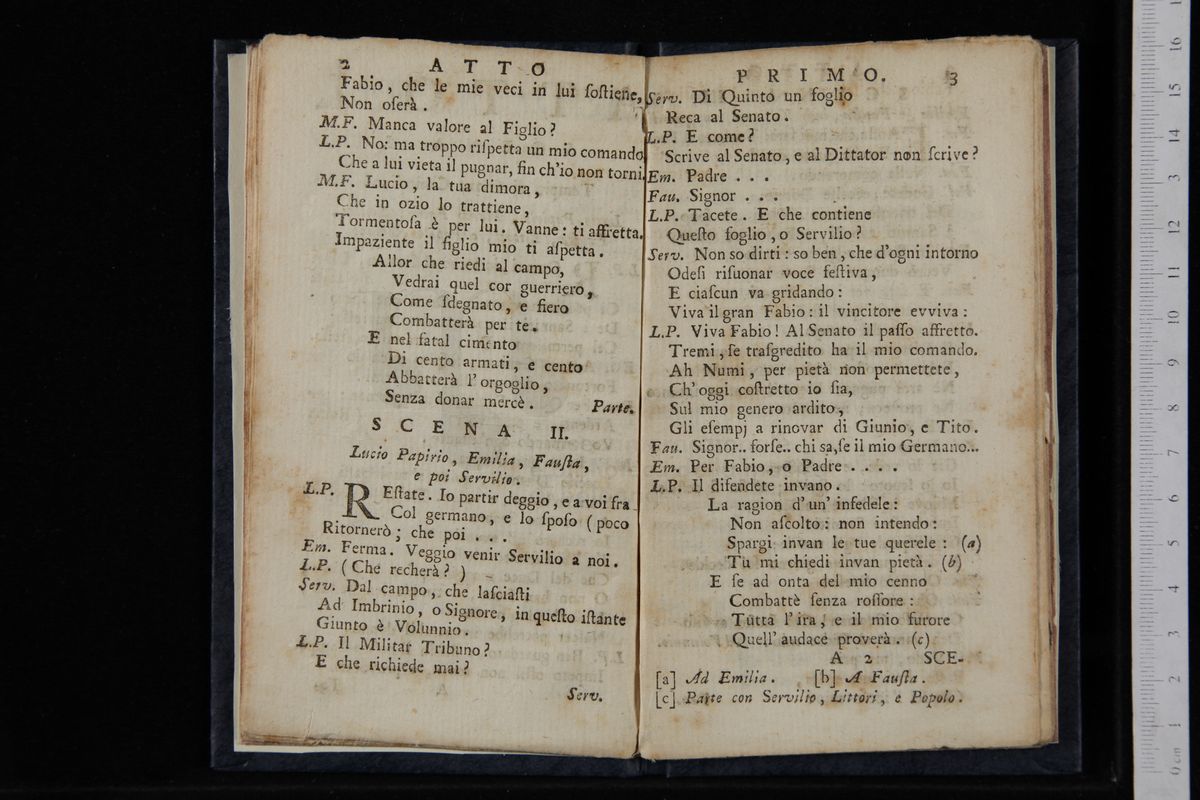 2 ATTO
Fabio, che le mie veci in lui ſoſtiene,
Non oſerà.
M.F. Manca valore al Figlio?
L.P. No: ma troppo riſpetta un mio comando
Che a lui vieta il pugnar, fin ch'io non torni.
M.F. Lucio, la tua dimora,
Che in ozio lo trattiene,
Tormentoſa è per lui. Vanne: ti affretta.
Impaziente il figlio mio ti aſpetta.
Allor che riedi al campo,
Vedrai quel cor guerriero,
Come ſdegnato, e fiero
Combatterà per te.
E nel fatal cimento
Di cento armati, e cento
Abbatterà l'orgoglio,
Senza donar mercè. Parte.
SCENA II.
Lucio Papirio, Emilia, Fauſta,
e poi Servilio.
L.P. REſtate. Io partir deggio, e a voi fra
Col germano, e lo ſpoſo (poco
Ritornerò; che poi . . .
Em. Ferma. Veggio venir Servilio a noi.
L.P. (Che recherà?)
Serv. Dal campo, che laſciaſti
Ad Imbrinio, o Signore, in queſto iſtante
Giunto è Volunnio.
L.P. Il Militar Tribuno?
E che richiede mai?
Serv.
PRIMO. 3
Serv. Di Quinto un foglio
Reca al Senato.
L.P. E come?
Scrive al Senato, e al Dittator non ſcrive?
Em. Padre . . .
Fau. Signor . . .
L.P. Tacete. E che contiene
Queſto foglio, o Servilio?
Serv. Non so dirti: so ben, che d'ogni intorno
Odeſi riſuonar voce feſtiva,
E ciaſcun va gridando:
Viva il gran Fabio: il vincitore evviva:
L.P. Viva Fabio! Al Senato il paſſo affretto.
Tremi, ſe traſgredito ha il mio comando.
Ah Numi, per pietà non permettete,
Ch'oggi coſtretto io ſia,
Sul mio genero ardito,
Gli eſempj a rinovar di Giunio, e Tito.
Fau. Signor.. forſe.. chi sa, ſe il mio Germano...
Em. Per Fabio, o Padre . . . .
L.P. Il difendete invano.
La ragion d'un' infedele:
Non aſcolto: non intendo:
Spargi invan le tue querele: (a)
Tu mi chiedi invan pietà. (b)
E ſe ad onta del mio cenno
Combattè ſenza roſſore:
Tutta l'ira, e il mio furore
Quell' audace proverà. (c)
A 2 SCE-
[a] Ad Emilia. [b] A Fauſta.
[c] Parte con Servilio, Littori, e Popolo.
16
15
14
13
12
11
10
9
8
7
6
5
4
3
2
1
0 cm